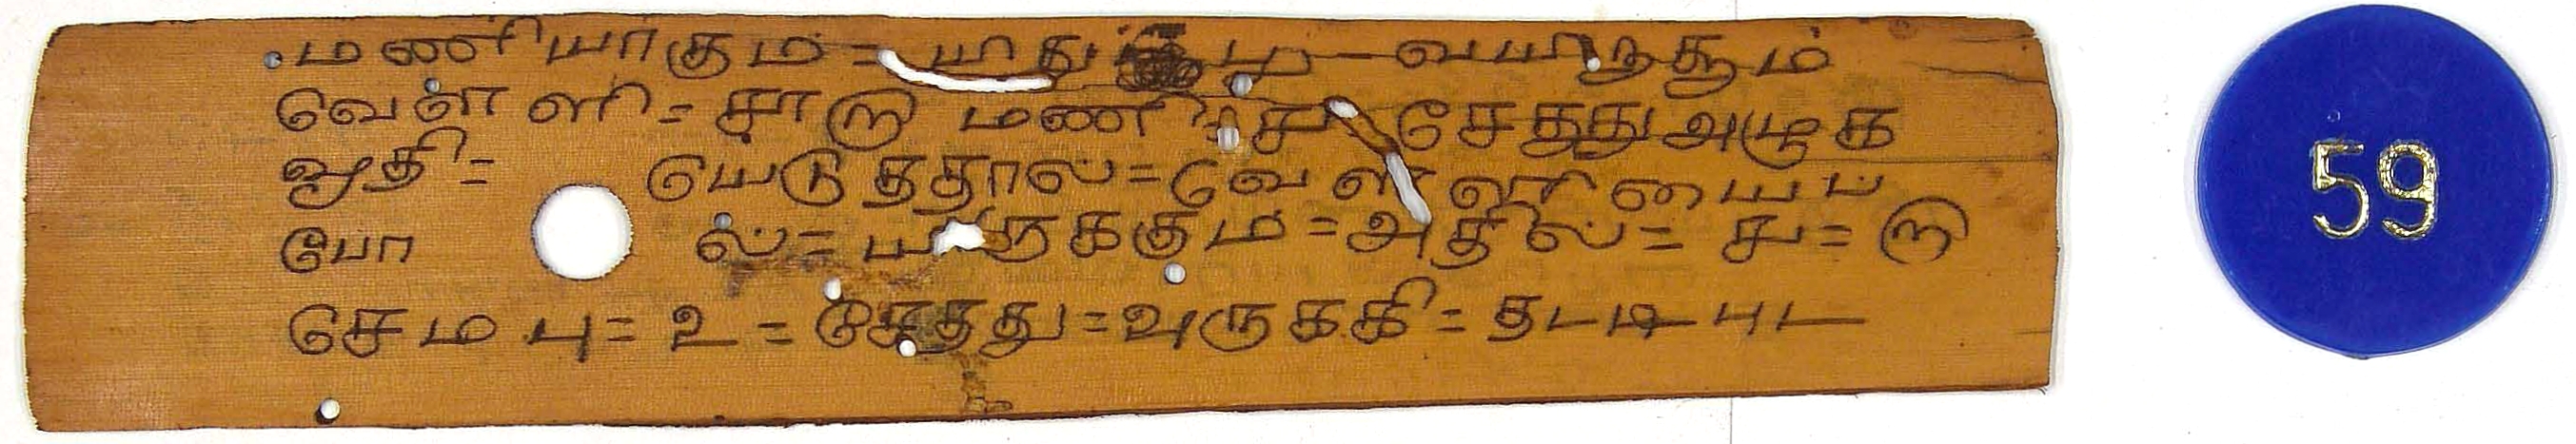 மணியாகும = யிது பூ வயிரகூம்
வெளளி = சுா௹ மணி சு சேதது அழுக
ஷதி = யெடுததால = வெளளியைப
போ ல் = யிருககும = அதில் = சு = ௹
செமபு = உ = சேதது = வுருககி = தடடிபுட
59